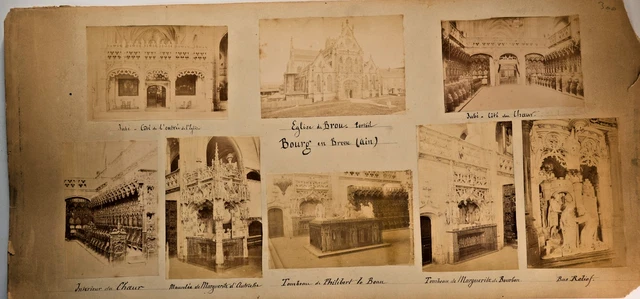 Jubé - Côté de l'entrée de l'Eglise
Eglise de Brou
Bourg en Bresse (Ain)
Jubé - Côté du Chœur
Intérieur du Chœur
Mausolée de Marguerite d'Autriche
Tombeau de Philibert le Beau
Tombeau de Marguerite de Bourbon
Bas Relief